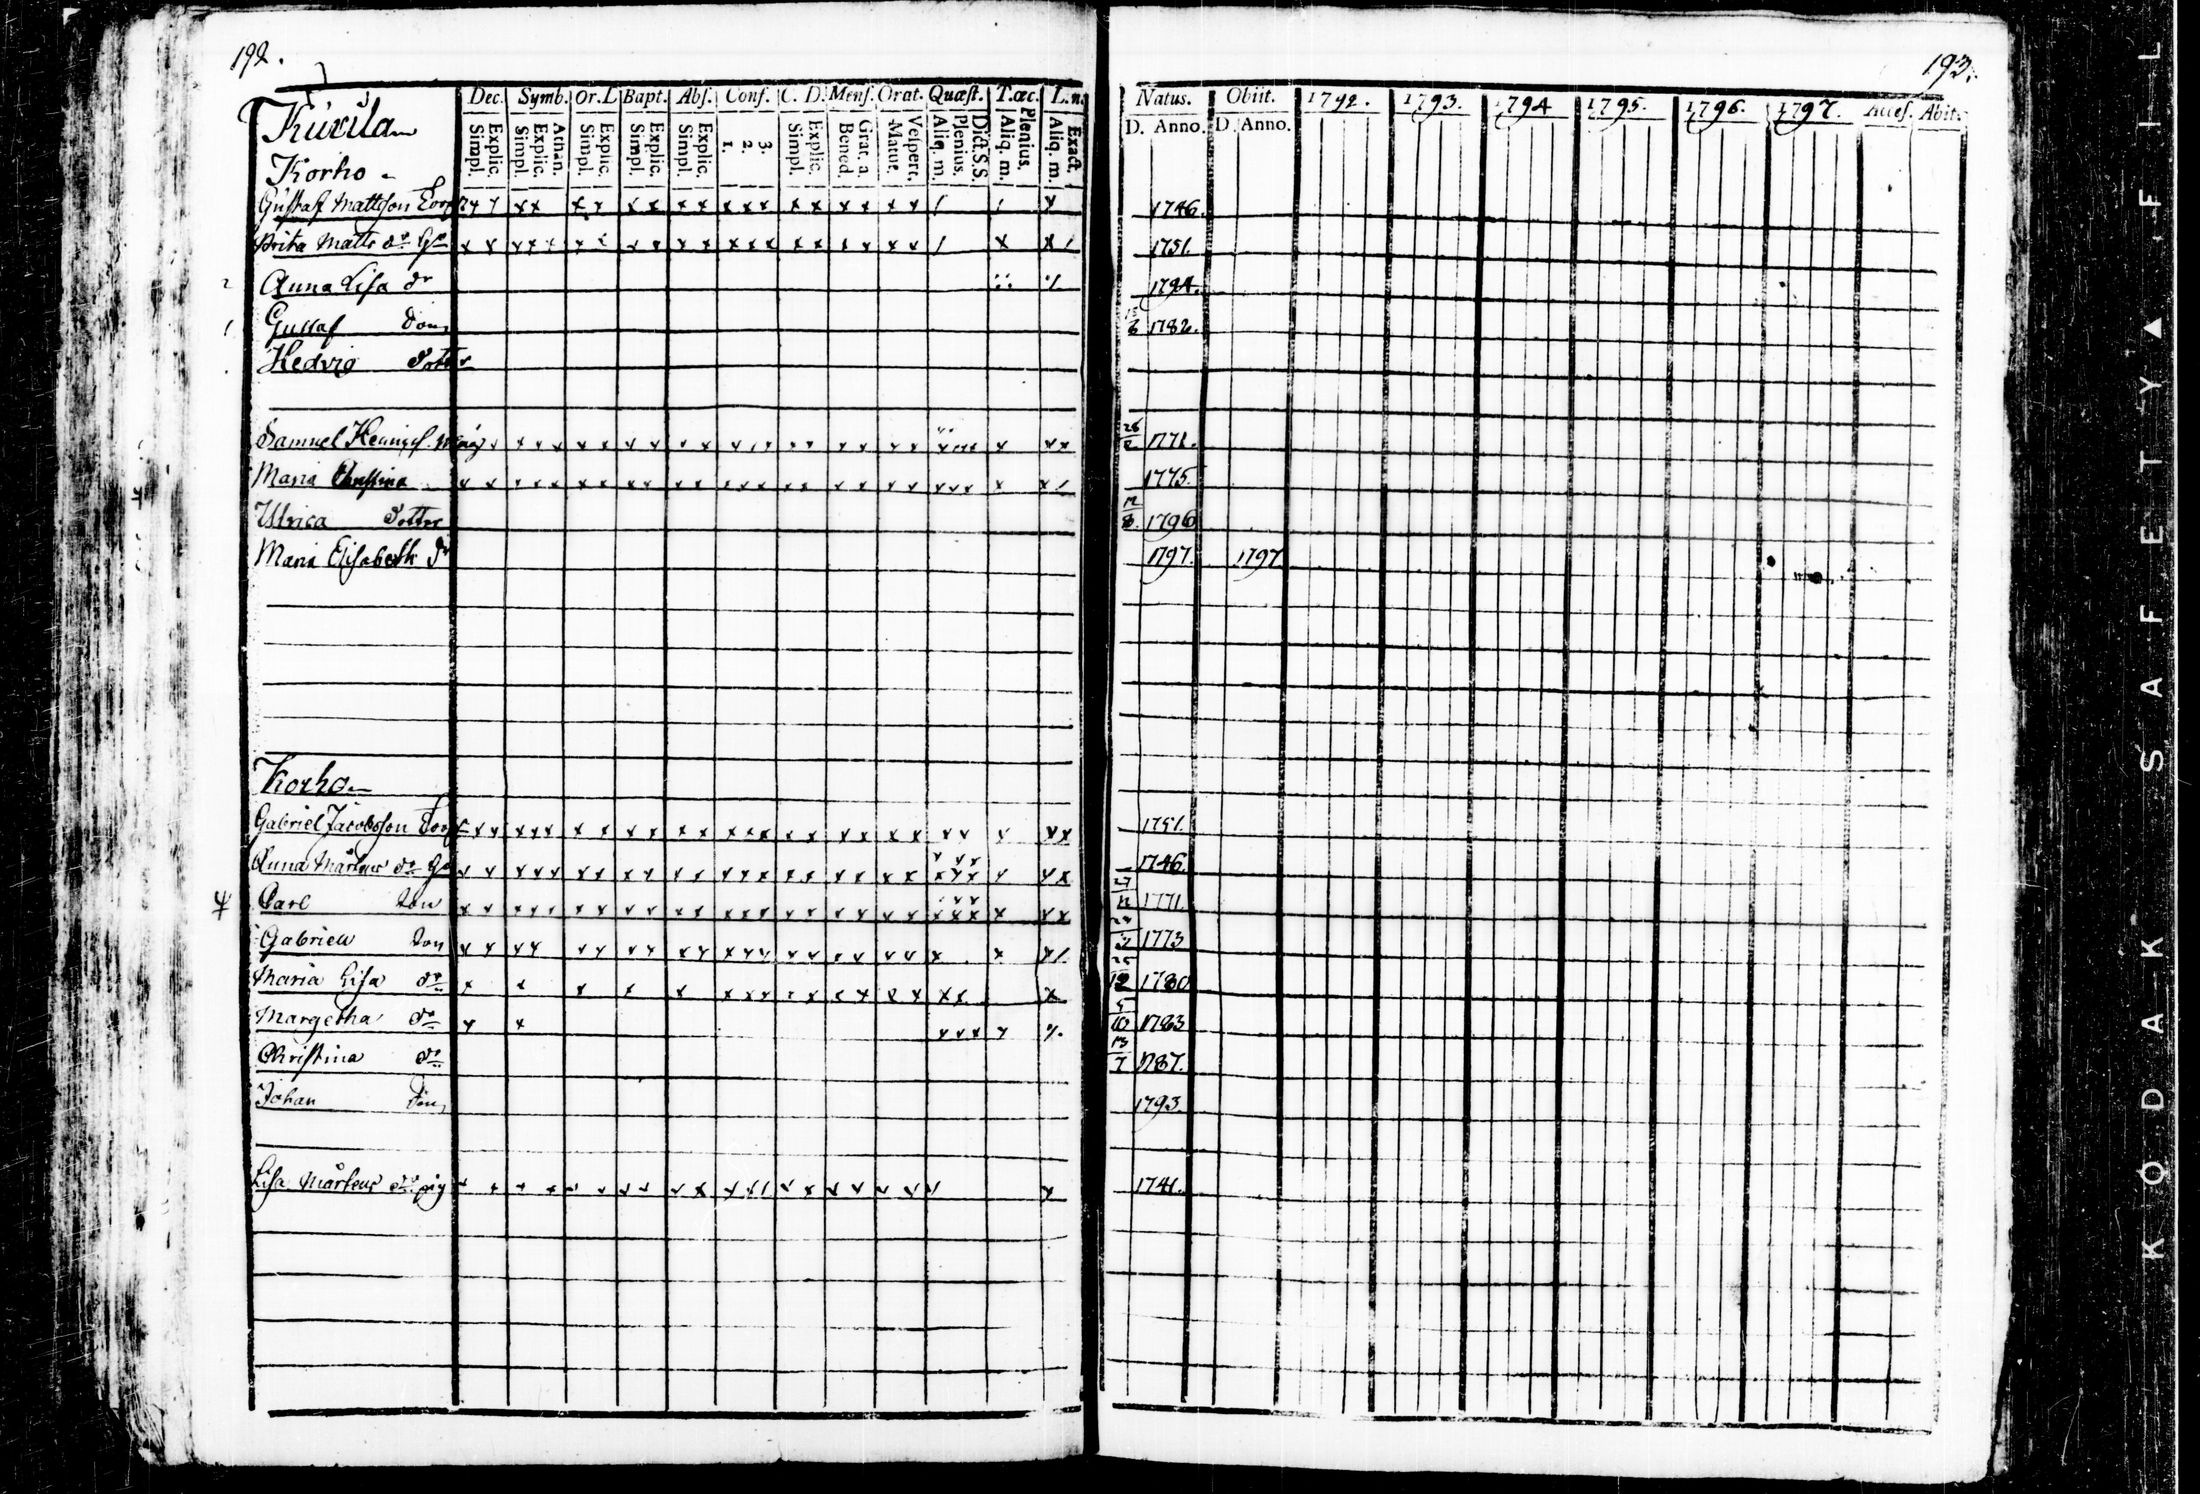 192.
193.
Dec. Symb. Or. L Bapt. Abs. Conf. C. D. Mens. Orat. Quæst. T.œc. L. n.
Simpl. Explic. Simpl. Explic. Athan. Simpl. Explic. Simpl. Explic. Simpl. Explic. 1. 2. 3. Simpl. Explic. Bened. Grat. a. Matut. Vespert. Aliq. m. Plenius. Dict. S.S. Aliq. m. Plenius. Aliq. m. Exact.
Natus. Obiit. 1792. 1793. 1794 1795. 1796. 1797. Acces. Abit.
D. Anno. D. Anno.
Korho
Gustaf Mattsson 1746.
Brita Matts dr 1751.
2 Anna Lisa dr 1794.
1 Gustaf Son 1782.
Hedvig Dotter
Samuel 1771.
Maria Christina 1775.
Ulrica Dotter 12/8. 1796
Maria Elisabeth dr 1797. 1797
Korho
Gabriel Jacobsson 1751.
Anna Mårtens dr 1746.
Carl Son 27/11 1771.
Gabriel Son 1773
Maria Lisa dr 25/12 1780
Margetha dr 5/10 1783
Christina dr 13/7 1787.
Johan Son 1793.
Lisa Mårtens dr pig 1741.
KODAK SAFETY ▲ FIL